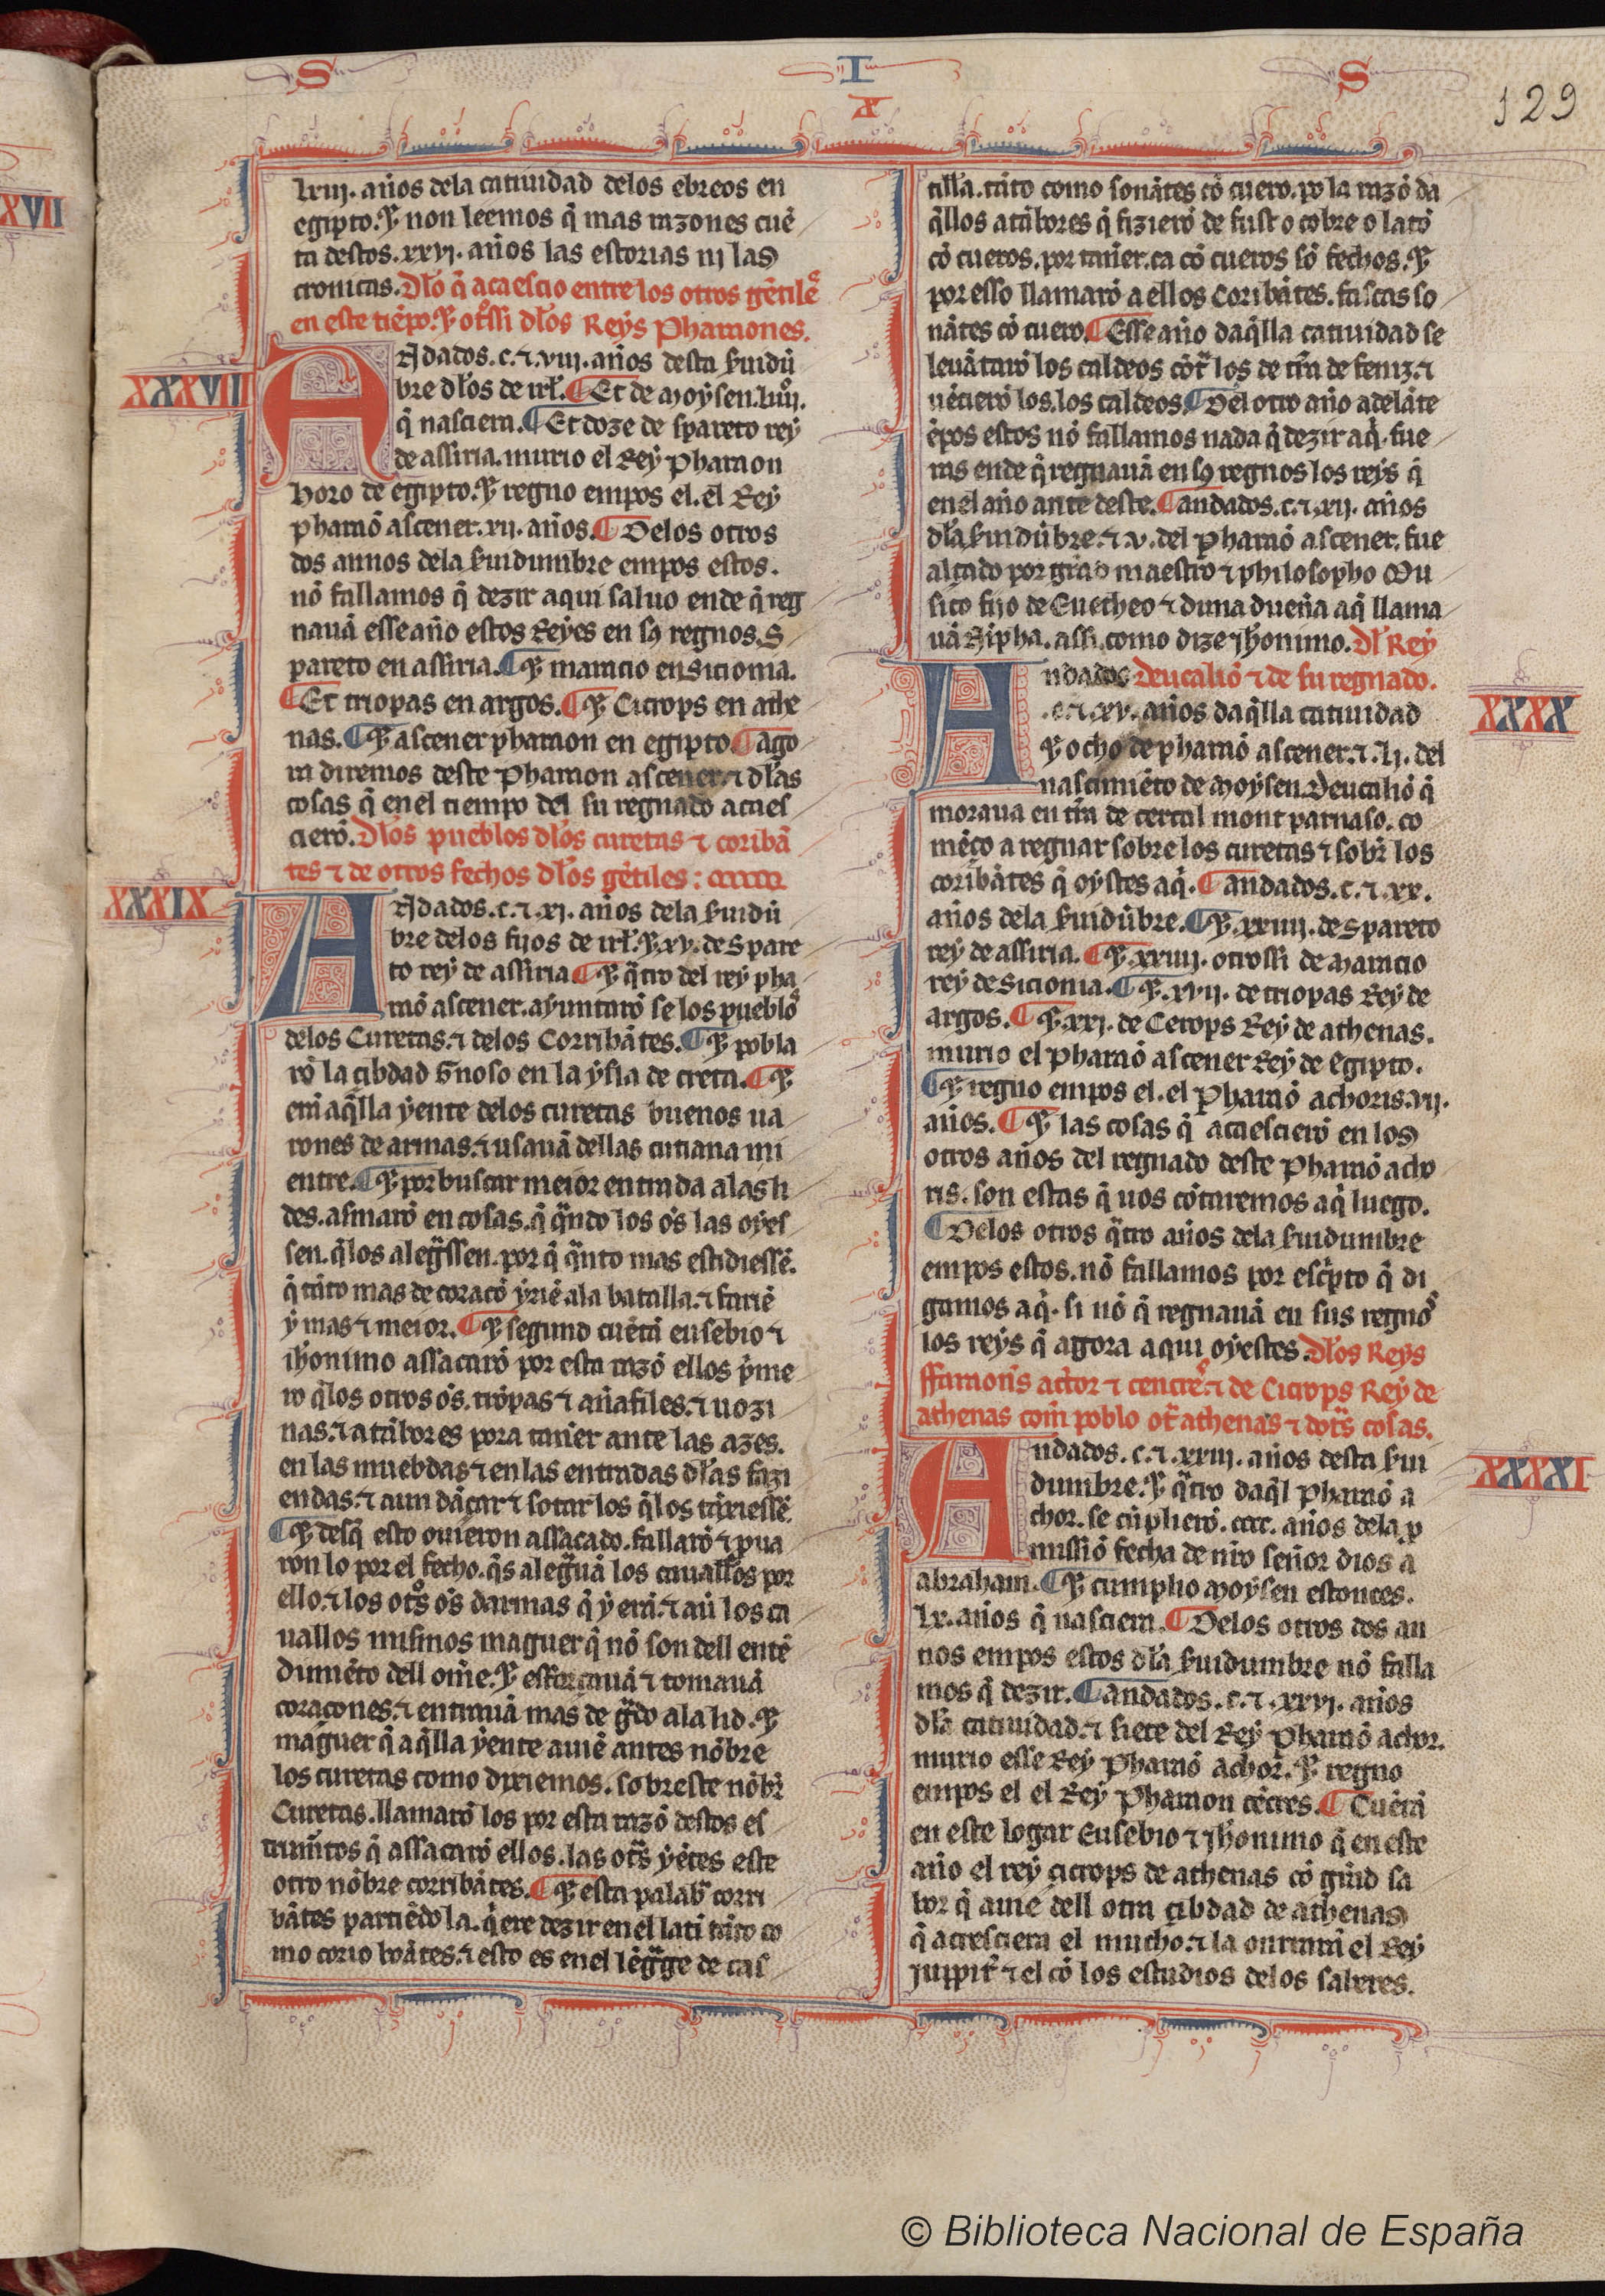 S I S
X
129
XVII
lxiij. años dela catiuidad delos ebreos en
egipto. ⁊ non leemos q̃ mas razones cuẽ
ta destos. xxvj. años las estorias nj las
cronicas. Dlo q̃ acaescio entre los otros gẽtiles
en este tiẽpo. ⁊ otssi dlos Reys Pharaones.
XXXVII
ANdados. c. ⁊. viij. años desta suidũ
bre dlos de irl. ¶ Et de moysen.
q̃ nasciera. ¶ Et doze de spareto rey
de assiria. murio el Rey Pharaon
horo de egipto. ⁊ regno empos el. el Rey
pharaõ ascener. xij. años. ¶ Delos otros
dos annos dela suidumbre empos estos.
nõ fallamos q̃ dezir aqui saluo ende q̃ reg
nauã esse año estos Reyes en sus regnos. S
pareto en assiria. ¶ ⁊ maracio en sicionia.
¶ Et triopas en argos. ¶ ⁊ Cicrops en athe
nas. ¶ ⁊ ascener pharaon en egipto ¶ ago
ra diremos deste Pharaon ascener. ⁊ dlas
cosas q̃ en el tiempo del su regnado acaes
cierõ. Dlos pueblos dlos curetas ⁊ coribã
tes ⁊ de otros fechos dlos gẽtiles:
XXXIX
ANdados. c. ⁊. xj. años dela suidũ
bre delos fijos de irl. ⁊. xv. de Spare
to rey de assiria ¶ ⁊ q̃tro del rey pha
raõ ascener. ayuntarõ se los pueblos
delos Curetas. ⁊ delos Corribãtes. ¶ ⁊ pobla
rõ la cibdad Gnoso en la ysla de creta. ¶ ⁊
era aq̃lla yente delos curetas buenos ua
rones de armas. ⁊ usauã dellas cutiana mi
entre. ¶ ⁊ por buscar meior entrada alas li
des. asmarõ en cosas. q̃ q̃ndo los oẽs las oyes
sen. q̃ los alegssen. por q̃ q̃nto mas estidiessẽ.
q̃ tãto mas de coraçõ yriẽ ala batalla. ⁊ fariẽ
y mas ⁊ meior. ¶ ⁊ segund cuẽta eusebio ⁊
ihonimo assacarõ por esta razõ ellos p̃me
ro q̃ los otros oẽs. trõpas ⁊ añafiles. ⁊ uozi
nas. ⁊ atãbores pora tañer ante las azes.
en las muebdas ⁊ en las entradas dlas fazi
endas. ⁊ aun dãçar ⁊ sotar los q̃ los tãxiessẽ.
¶ ⁊ desq̃ esto ouieron assacado. fallarõ ⁊ p̃ua
ron lo por el fecho. q̃ s alegrauã los cauallos por
ello. ⁊ los otros oẽs darmas q̃ y erã. ⁊ aũ los ca
uallos mismos maguer q̃ nõ son dell entẽ
dimẽto dell ome. ⁊ esforçauã ⁊ tomauã
coraçones. ⁊ entrauã mas de grado ala lid. ⁊
maguer q̃ aq̃lla yente auiẽ antes nõbre
los curetas como dixiemos. sobreste nõbre
Curetas. llamarõ los por esta razõ destos es
trumẽtos q̃ assacarõ ellos. las otras yẽtes este
otro nõbre corribãtes. ¶ ⁊ esta palabra corri
bãtes partiẽdo la. q̃ere dezir en el lati tãto co
mo corio boãtes. ⁊ esto es en el lẽguage de cas
tilla. tãto como sonãtes cõ cuero. por la razõ da
q̃llos atãbores q̃ fizierõ de fust o cobre o latõ
cõ cueros. por tañer. ca cõ cueros sõ fechos. ⁊
por esso llamarõ a ellos Coribãtes. fascas so
nãtes cõ cuero. ¶ Esse año daq̃lla catiuidad se
leuãtarõ los caldeos cõtra los de tra de feniz. ⁊
uẽcierõ los. los caldeos. ¶ Del otro año adelãte
ẽpos estos nõ fallamos nada q̃ dezir aq̃. fue
ras ende q̃ regnauã en sus regnos los reys q̃
en el año ante deste. ¶ andados. c. ⁊. xij. años
dla suidũbre. ⁊. v. del Pharaõ ascener. fue
alçado por grãd maestro ⁊ philosopho Mu
sico fijo de Euetheo ⁊ duna dueña aq̃ llama
uã Nipha. assi. como dize ihonimo. Dl Rey
XXXX
ANdados Deucaliõ ⁊ de su regnado.
.c. ⁊. xv. años daq̃lla catiuidad
⁊ ocho de pharaõ ascener. ⁊. lj. del
nascimiẽto de moysen. Deucaliõ q̃
moraua en tra de cercal mont parnaso. co
mẽço a regnar sobre los curetas ⁊ sobre los
coribãtes q̃ oystes aq̃. ¶ andados. c. ⁊. xx.
años dela suidũbre. ¶ ⁊. xxiiij. de Spareto
rey de assiria. ¶ ⁊. xxiiij. otrossi de maracio
rey de Sicionia. ¶ ⁊. xvij. de triopas Rey de
argos. ¶ ⁊. xxj. de Cecrops Rey de athenas.
murio el Pharaõ ascener Rey de Egipto.
¶ ⁊ regno empos el. el Pharaõ achoris. vij.
años. ¶ ⁊ las cosas q̃ acaescierõ en los
otros años del regnado deste Pharaõ acho
ris. son estas q̃ uos cõtaremos aq̃ luego.
¶ Delos otros q̃tro años dela suidumbre
empos estos. nõ fallamos por escripto q̃ di
gamos aq̃. si nõ q̃ regnauã en sus regnos
los reys q̃ agora aqui oyestes. Dlos Reys
ffaraones achor ⁊ cencres. ⁊ de Cicrops Rey de
athenas com poblo otra athenas ⁊ dotras cosas.
XXXXI
ANdados. c. ⁊. xxiij. años desta sui
dumbre. ⁊ q̃tro daq̃l Pharaõ a
chor. se cũplierõ. cccc. años dela p
missiõ fecha de nro señor dios a
abraham. ¶ ⁊ cumplio moysen estonces.
lx. años q̃ nasciera. ¶ Delos otros dos an
nos empos estos dla suidumbre nõ falla
mos q̃ dezir. ¶ andados. c. ⁊. xxvj. años
dla catiuidad. ⁊ siete del Rey Pharaõ achor.
murio esse Rey Pharaõ achor. ⁊ regno
empos el el Rey Pharaon cẽcres. ¶ Cuẽta
en este logar Eusebio ⁊ Jhonimo q̃ en este
año el rey cicrops de athenas cõ grãd sa
bor q̃ auie dell otra cibdad de athenas
q̃ acresciera el mucho. ⁊ la onrrara el Rey
Juppiter ⁊ el cõ los estudios delos saberes.
© Biblioteca Nacional de España